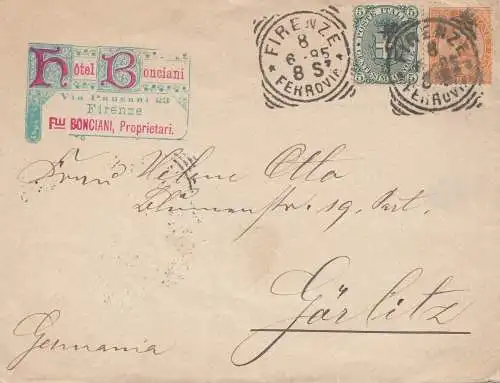 Hôtel Bonciani
Via Panzani 23
Firenze
F.lli BONCIANI, Proprietari.
FIRENZE
8
6-95
8 S
FERROVIA
POSTE ITALIANE
5 5
FIRENZE
8
FERROVIA
Frau Helene Otto
Blumenstr. 19. Part.
Görlitz
Germania